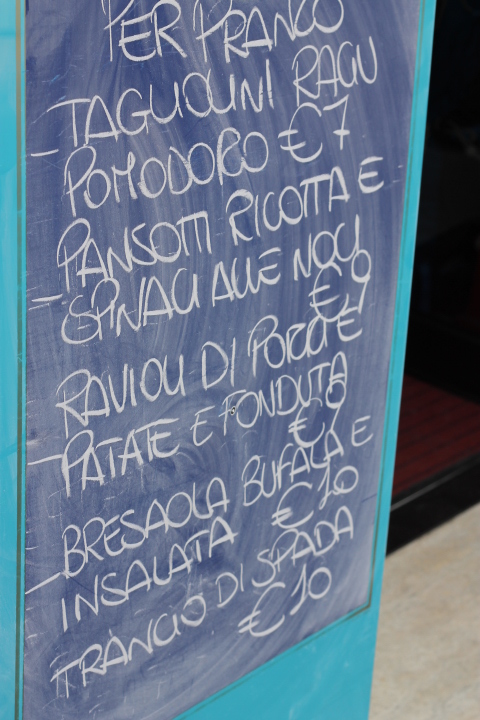 PER PRANZO
- TAGLIOLINI RAGU
POMODORO € 7
PANSOTTI RICOTTA E
- SPINACI ALLE NOCI
€ 9
RAVIOLI DI PORRI E
- PATATE E FONDUTA
€ 9
BRESAOLA BUFALA E
- INSALATA € 10
TRANCIO DI SPADA
€ 10